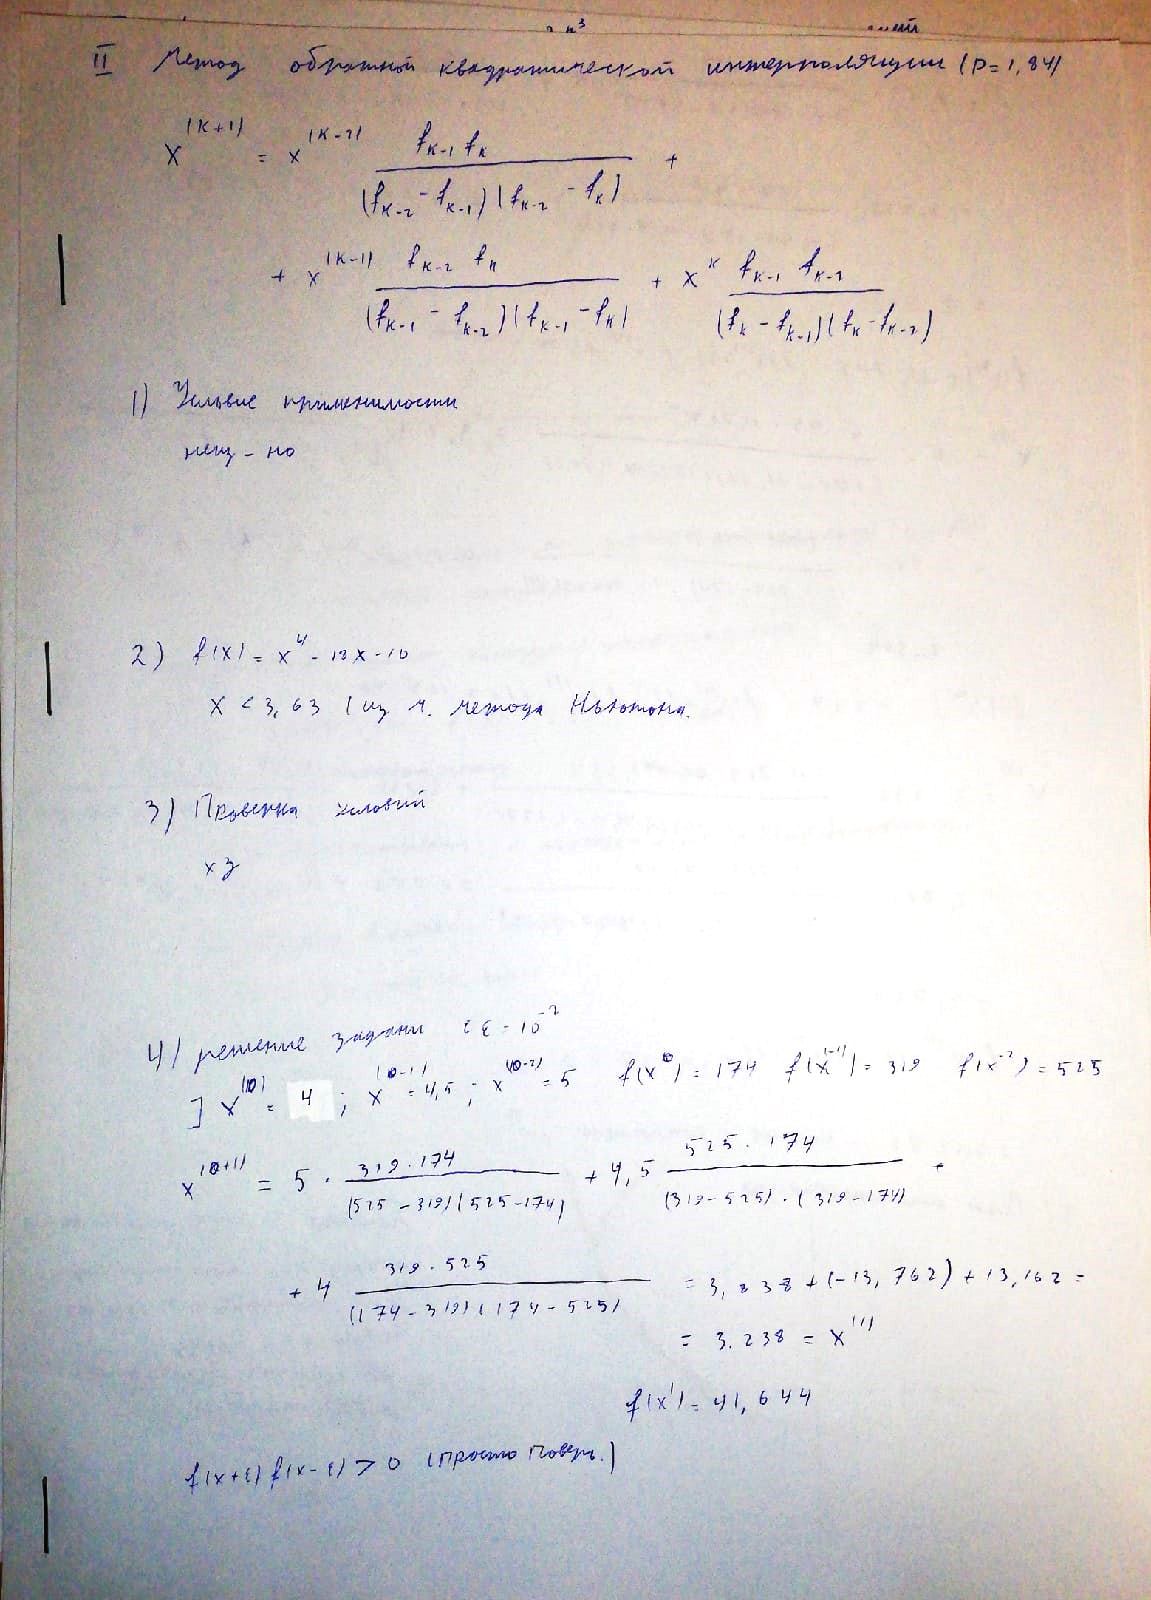 II Метод обратной квадратической интерполяции (p=1,84)
x^(k+1) = x^(k-2) f_k-1 f_k / (f_k-2 - f_k-1)(f_k-2 - f_k) +
+ x^(k-1) f_k-2 f_k / (f_k-1 - f_k-2)(f_k-1 - f_k) + x^k f_k-1 f_k-2 / (f_k - f_k-1)(f_k - f_k-2)
1) Условие применимости
неиз-но
2) f(x) = x^4 - 13x - 10
x < 3,63 (из м. метода Ньютона.
3) Проверка условий
хз
4) решение задачи с ε = 10^-2
] x^(0) = 4 ; x^(0-1) = 4,5 ; x^(0-2) = 5 f(x^0) = 174 f(x^(-1)) = 319 f(x^-2) = 525
x^(0+1) = 5 · 319·174 / (525-319)(525-174) + 4,5 525·174 / (319-525)·(319-174) +
+ 4 319·525 / (174-319)(174-525) = 3,838 + (-13,762) + 13,162 =
= 3.238 = x^(1)
f(x^1) = 41,644
f(x+ε) f(x-ε) > 0 (просто поверь.)